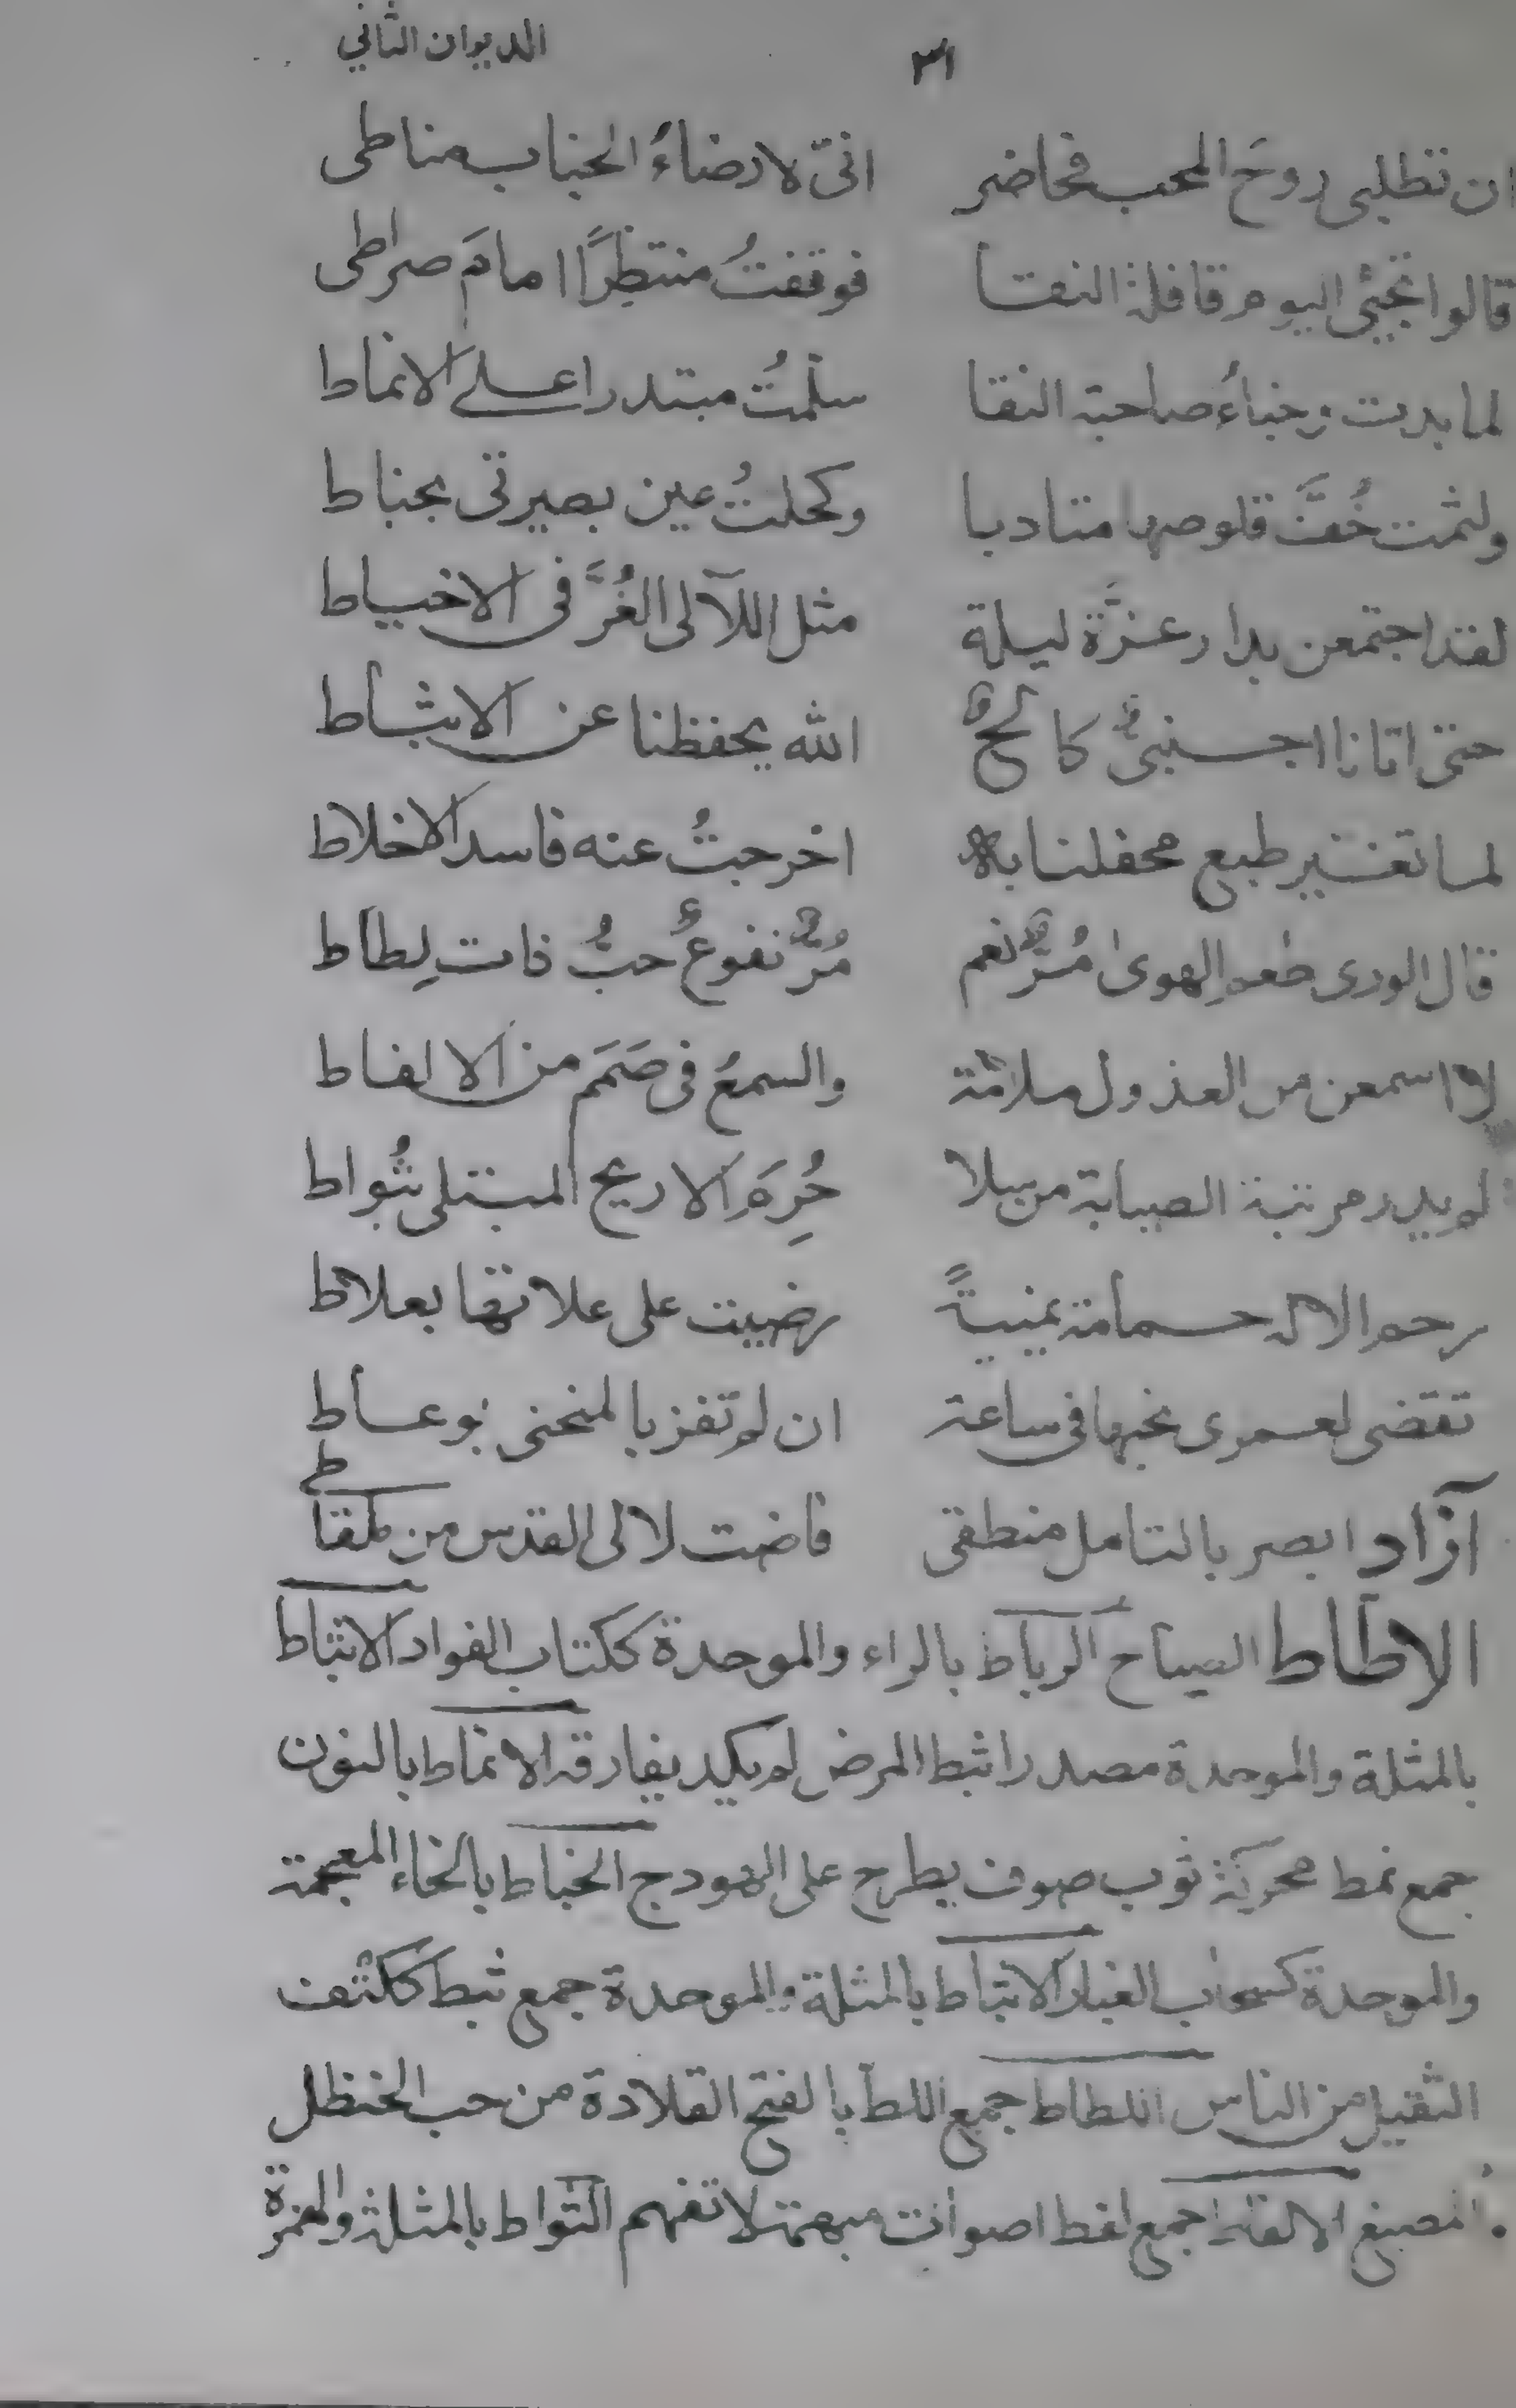 ٣١ الديوان الثاني
ان تطلبي روحَ المحب فحاضر انىّ لارضاءُ الجناب مناطى
قالوا تجيئ اليوم قافلة النقا فوقفتُ منتظِرًا امامَ صراطى
لما بدت وجناءُ صاحبة النقا سلمتُ مبتدرا على الانماط
ولثمت خُفَّ قلوصها متادبا وكحلتُ عين بصيرتى بخباط
لقد اجتمعن بدار عزَّة ليلة مثل اللآلى الغُرَّ فى الاخياط
حتى اتانا اجنبىٌّ كالحٌ الله يحفظنا عن الاثباط
لما تغير طبع محفلنا به اخرجتُ عنه فاسد الاخلاط
قال الورى طعم الهوىٰ مُرٌّ نعم مُرٌّ نفوعٌ حبُّ ذات لِطاط
لا اسمعن من العذول ملامة والسمعُ فى صَمَم من الالغاط
لم يدر مرتبة الصبابة من بلا حُرِمَ الاريح المبتلى بثُواط
رحم الاله حمامة يمنيةً رضيت على علاتها بعلاط
تقضى لعمرى نحبها فى ساعة ان لم تفز بالمنحنى بوعاط
آزاد ابصر بالتامل منطقى فاضت لالى القدس من ملقاطى
الاطاط الصياح الرباط بالراء والموحدة ككتاب الفواد الاثباط
بالمثلة والموحدة مصدر اثبط المرض لم يكد يفارقه الانماط بالنون
جمع نمط محركة ثوب صوف يطرح على الهودج الخباط بالخاء المعجمة
والموحدة كسحاب الغبار الاثباط بالمثلة والموحدة جمع ثبط ككتف
الثقيل من الناس اللطاط جمع اللط بالفتح القلادة من حب الحنظل
المصبغ الالغاط جمع لغط اصوات مبهمة لا تفهم الثواط بالمثلة والهمزة